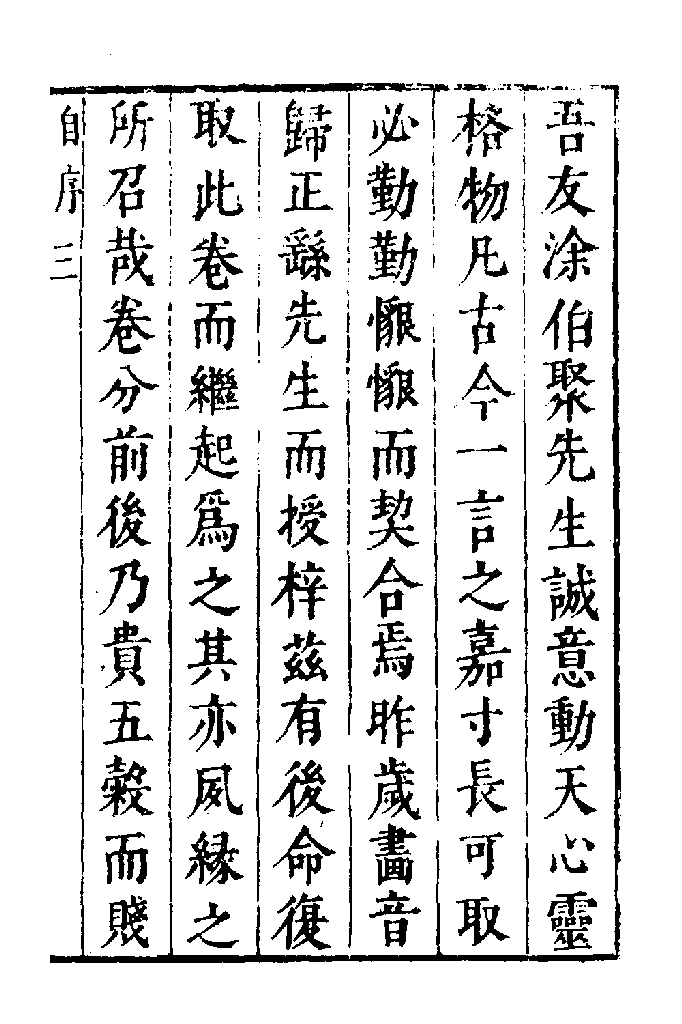 吾友涂伯聚先生誠意動天心靈
格物凡古今一言之嘉寸長可取
必勤勤懇懇而契合焉昨歲畫音
歸正繇先生而授梓茲有後命復
取此卷而繼起為之其亦夙緣之
所召哉卷分前後乃貴五穀而賤
自序 三